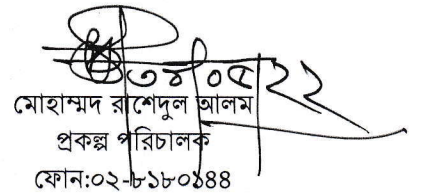 মোহাম্মদ রাশেদুল আলম
প্রকল্প পরিচালক
ফোন:০২-৮১৮০১৪৪